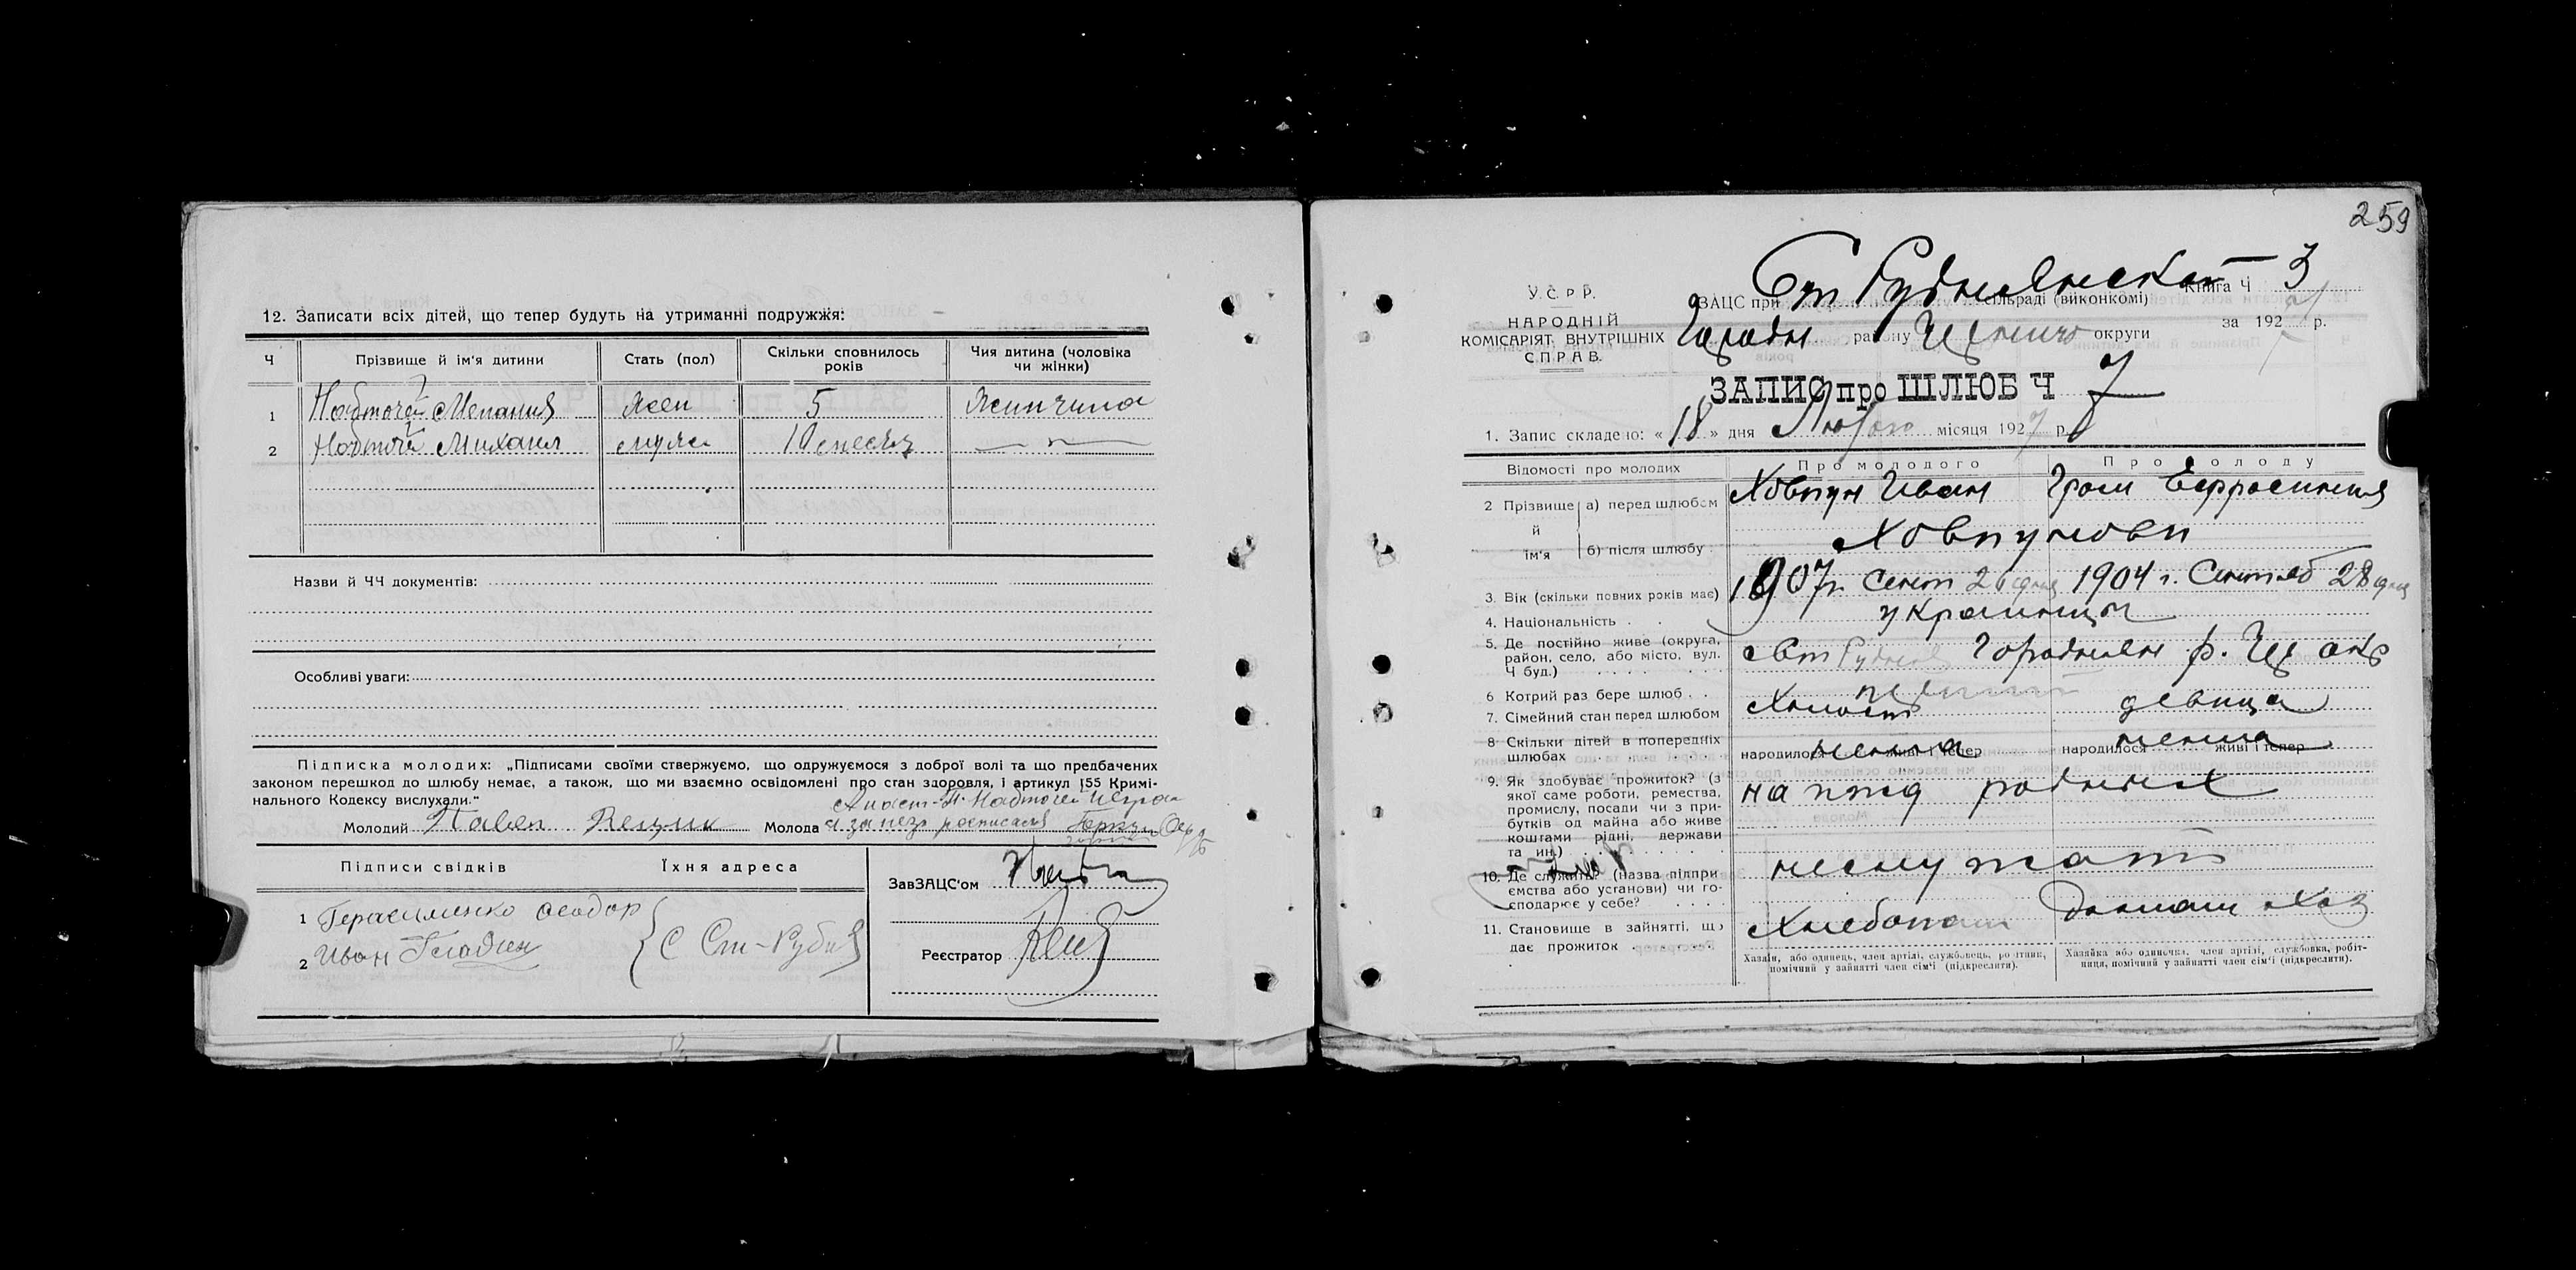 12. Записати всіх дітей, що тепер будуть на утриманні подружжя:
Ч Прізвище й ім'я дитини Стать (пол) Скільки сповнилось років Чия дитина (чоловіка чи жінки)
1 Надточей Мелания жен 5 Женчина
2 Надточей Михаил муж 10 месяц — „ —
Назви й ЧЧ документів:
Особливі уваги:
Підписка молодих: „Підписами своїми стверджуємо, що одружуємося з доброї волі та що предбачених
законом перешкод до шлюбу немає, а також, що ми взаємно освідомлені про стан здоровля, і артикул 155 Кримі-
нального Кодексу вислухали."
Молодий Павел Рещик Молода за неё росписался
Підписи свідків Їхня адреса
ЗавЗАЦС'ом
1 Герасименко Феодор
2 Иван
С Ст-Рудня
Реєстратор
259
У.С.Р.Р.
НАРОДНІЙ
КОМІСАРІЯТ ВНУТРІШНІХ
СПРАВ.
ЗАЦС при Ст Руднянской сільраді (виконкомі) Книга Ч 3
Городн району Черниг округи за 1927 р.
ЗАПИС про ШЛЮБ Ч 7
1. Запис складено: « 18 » дня Лютого місяця 1927 р.
Відомості про молодих Про молодого Про молоду
2 Прізвище й ім'я а) перед шлюбом Ховпун Иван Ефросиния
б) після шлюбу Ховпунови
3. Вік (скільки повних років має) 1907 г. Сент 26 дня 1904 г. Сентяб 28 дня
4. Національність украинци
5. Де постійно живе (округа, район, село, або місто, вул. Ч буд.) Ст Рудня Городнян р. Чер окр
6 Котрий раз бере шлюб первый
7. Сімейний стан перед шлюбом Холост девица
8 Скільки дітей в попередніх шлюбах народилося нема живі і тепер народилося нема живі і тепер
9. Як здобуває прожиток? (з якої саме роботи, ремества, промислу, посади чи з прибутків од майна або живе коштами рідні, держави та ин.)
10. Де служить? (назва підприємства або установи) чи господарює у себе? не служат
11. Становище в зайнятті, що дає прожиток Хлебопаш Домаш хоз
Хазяїн, або одинець, член артілі, службовець, робітник, помічний у зайнятті член сім'ї (підкреслити).
Хазяйка або одиначка, член артілі, службовка, робітниця, помічний у зайнятті член сім'ї (підкреслити).